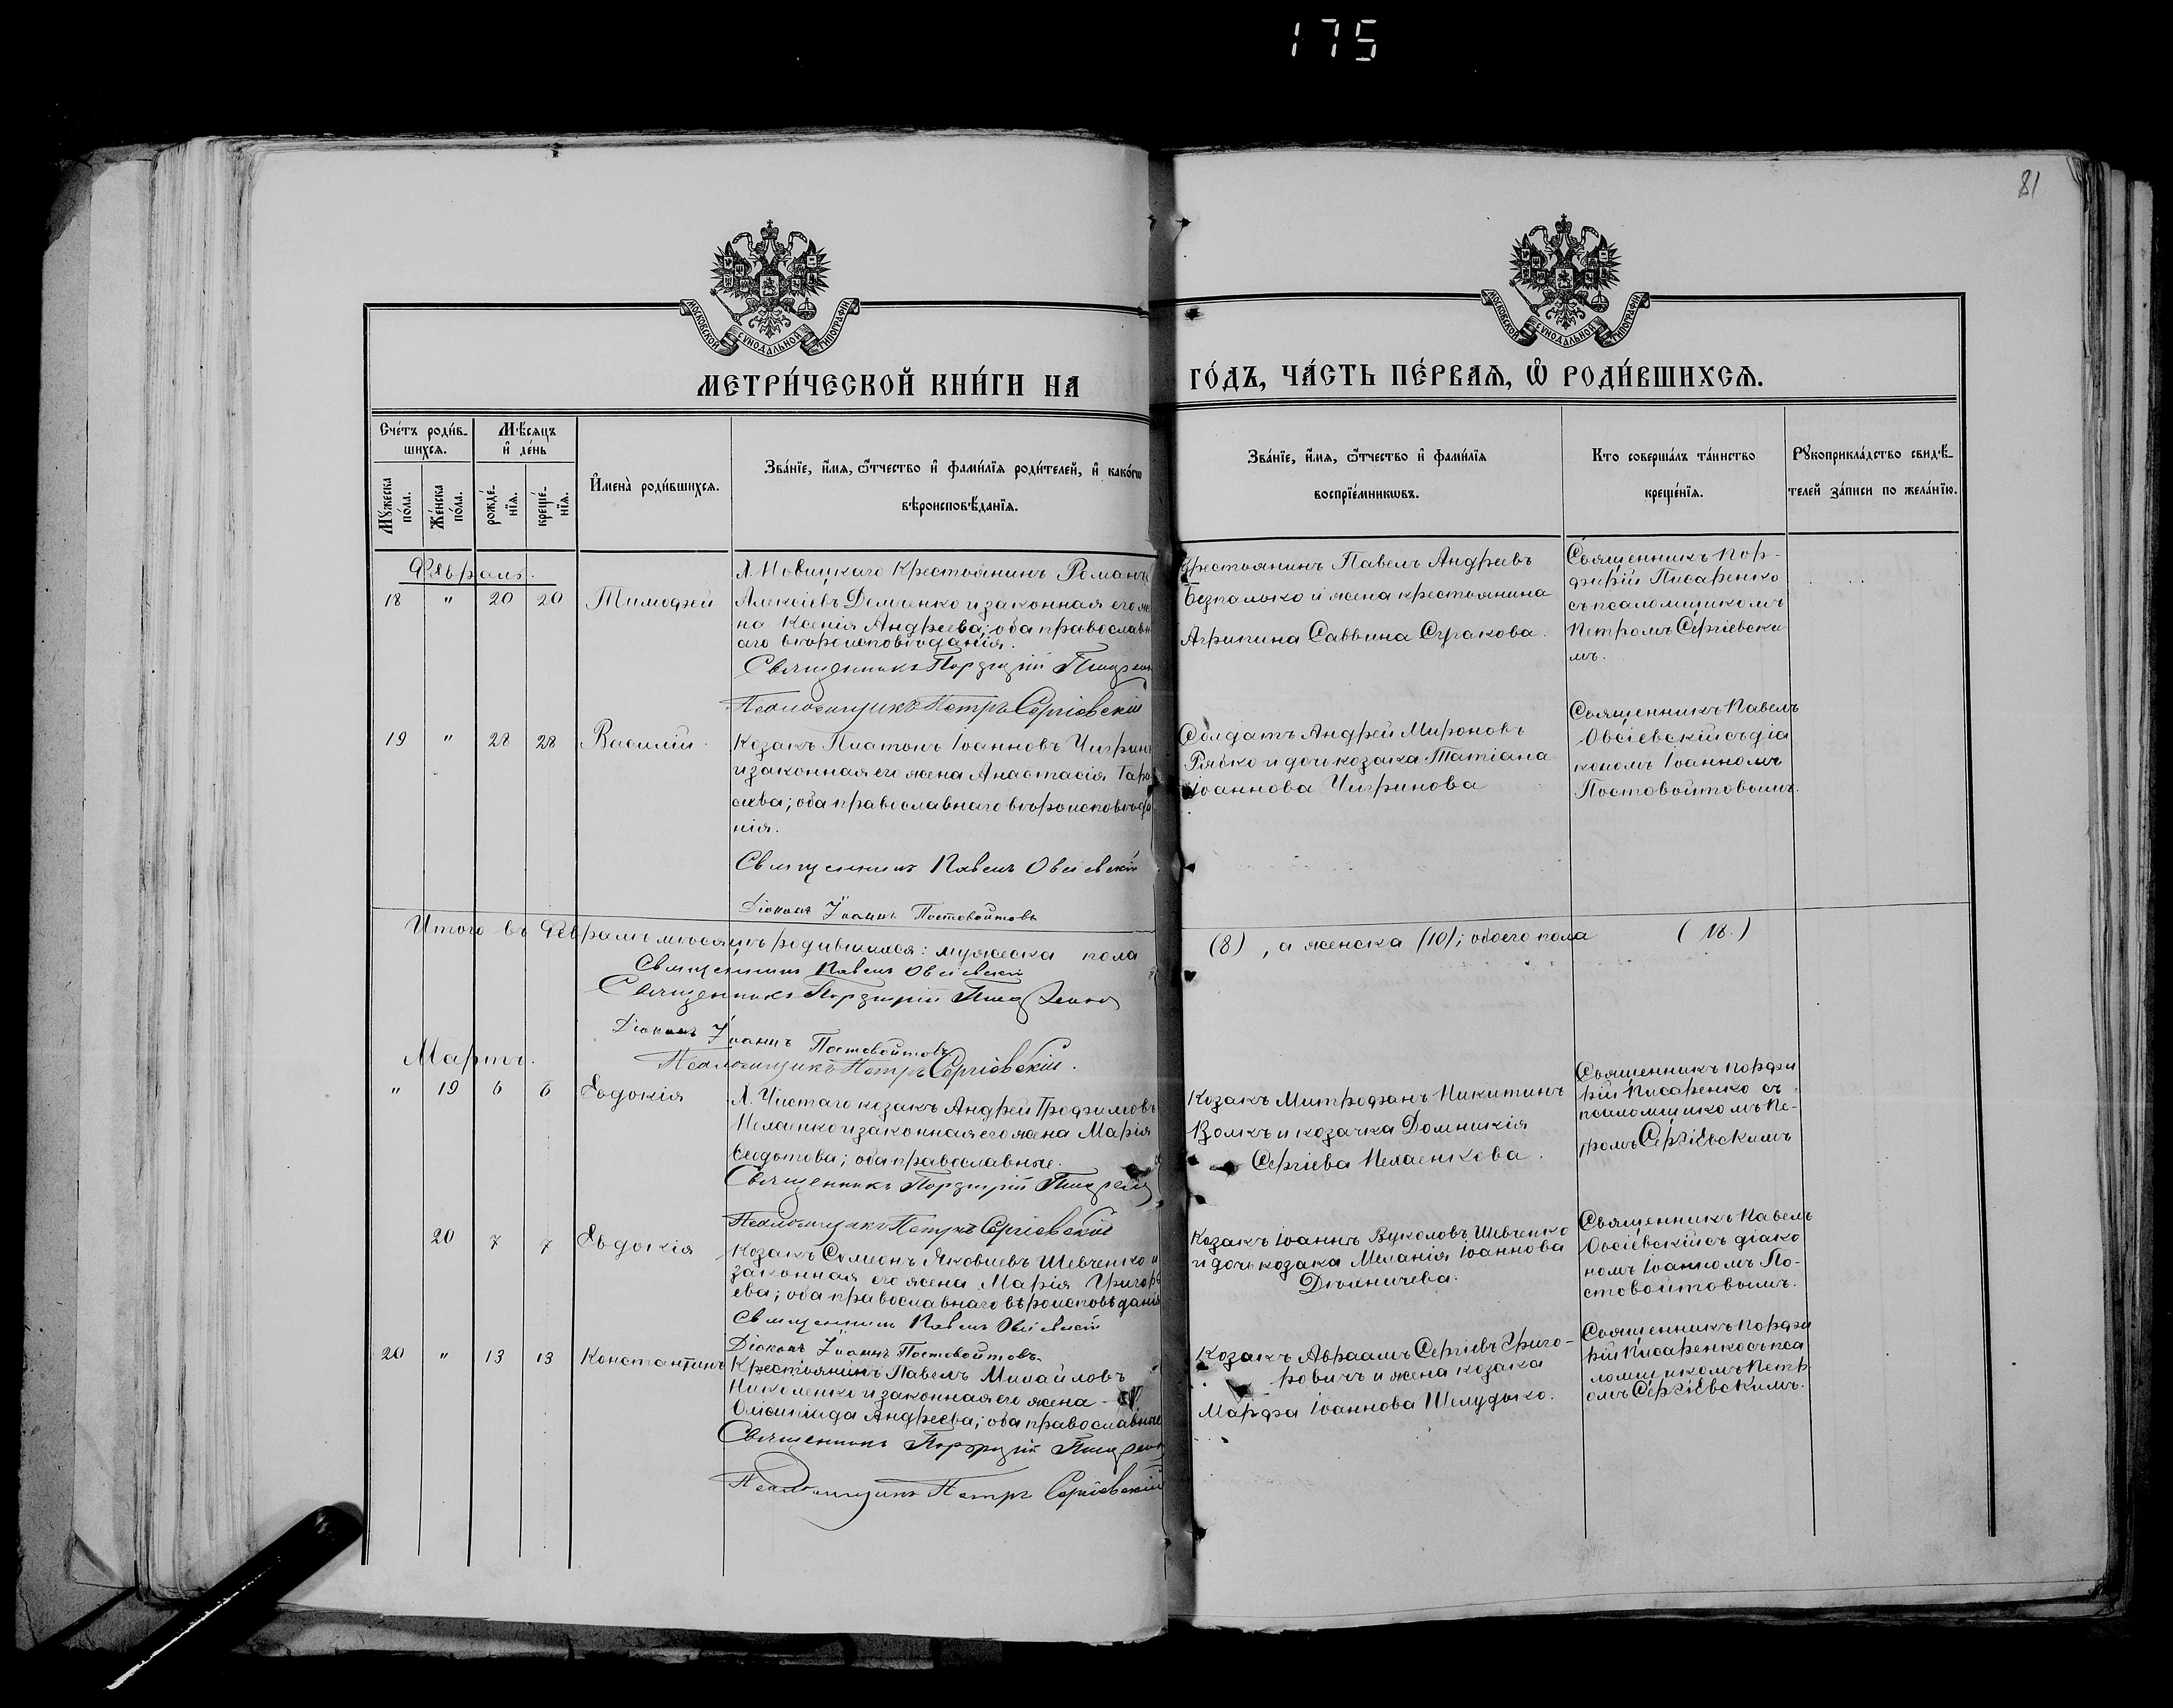 175
81
МОСКОВСКОЙ СѴНОДАЛЬНОЙ ТИПОГРАФІИ
МОСКОВСКОЙ СѴНОДАЛЬНОЙ ТИПОГРАФІИ
МЕТРИ́ЧЕСКОЙ КНИ́ГИ НА ГО́ДЪ, ЧА́СТЬ ПЕ́РВАѦ, Ѡ҆ РОДИ́ВШИХСѦ.
Сче́тъ роди́в-
шихсѧ.
Мѣ́сѧцъ
и҆ де́нь
Мꙋ́жеска
по́ла.
Же́нска
по́ла.
рожде́-
нїѧ.
креще́-
нїѧ.
И҆мена̀ роди́вшихсѧ.
Зва́нїе, и҆́мѧ, ѻ҆́тчество и҆ фами́лїѧ роди́телей, и҆ како́гѡ
вѣроисповѣ́данїѧ.
Зва́нїе, и҆́мѧ, ѻ҆́тчество и҆ фами́лїѧ
воспрїе́мникѡвъ.
Кто соверша́лъ та́инство
креще́нїѧ.
Рꙋкоприкла́дство свидѣ́-
телей за́писи по жела́нїю.
Февраль.
18 " 20 20 Тимофей
Х. Новицкаго Крестьянинъ Романъ
Алексіевъ Демченко и законная его же
на Ксенія Андреева; оба православн
аго вѣроисповѣданія.
Священникъ Порфирій Писаренко
Псаломщикъ Петръ Сергіевскій
Крестьянинъ Павелъ Андреевъ
Безпалько и жена крестьянина
Агрипина Саввина Сугакова.
Священникъ Пор-
фирій Писаренко
съ псаломщикомъ
Петромъ Сергіевски
мъ.
19 " 28 28 Василій.
Козакъ Платонъ Іоанновъ Чигрин
и законная его жена Анастасія Тара
сіева; оба православнаго вѣроисповѣда
нія.
Священникъ Павелъ Овсіевскій
Діаконъ Іоаннъ Постовойтовъ
Солдатъ Андрей Мироновъ
Рябко и дочь козака Татіана
Іоаннова Чигринова
Священникъ Павелъ
Овсіевскій съ діа
кономъ Іоанномъ
Постовойтовымъ.
Итого въ Февралѣ мѣсяцѣ родившихся: мужеска пола (8), а женска (10); обоего пола (18.)
Священникъ Павелъ Овсіевскій
Священникъ Порфирій Писаренко
Діаконъ Іоаннъ Постовойтовъ
Псаломщикъ Петръ Сергіевскій.
Мартъ.
" 19 6 6 Евдокія
Х. Чистаго козакъ Андрей Трофимовъ
Пелаенко и законная его жена Марія
Федотова; оба православные.
Священникъ Порфирій Писаренко
Псаломщикъ Петръ Сергіевскій
Козакъ Митрофанъ Никитинъ
Волкъ и козачка Домникія
Сергіева Пелаенкова.
Священникъ Порфи
рій Писаренко съ
псаломщикомъ Пе-
тромъ Сергіевскимъ
20 7 7 Евдокія
Козакъ Симеонъ Яковлевъ Шевченко и
законная его жена Марія Григорь
ева; оба православнаго вѣроисповѣданія
Священникъ Павелъ Овсіевскій
Діаконъ Іоаннъ Постовойтовъ
Козакъ Іоаннъ Вуколовъ Шевченко
и дочь козака Меланія Іоаннова
Священникъ Павелъ
Овсіевскій съ діако
номъ Іоанномъ По-
стовойтовымъ.
20 " 13 13 Константинъ
Крестьянинъ Павелъ Михайловъ
Николенко и законная его жена -
Олимпіада Андреева; оба православные
Священникъ Порфирій Писаренко
Псаломщикъ Петръ Сергіевскій
Козакъ Авраамъ Сергіевъ Григо-
ровичъ и жена козака
Марфа Іоаннова Шелудько.
Священникъ Порфи
рій Писаренко съ пса
ломщикомъ Петр
омъ Сергіевскимъ.